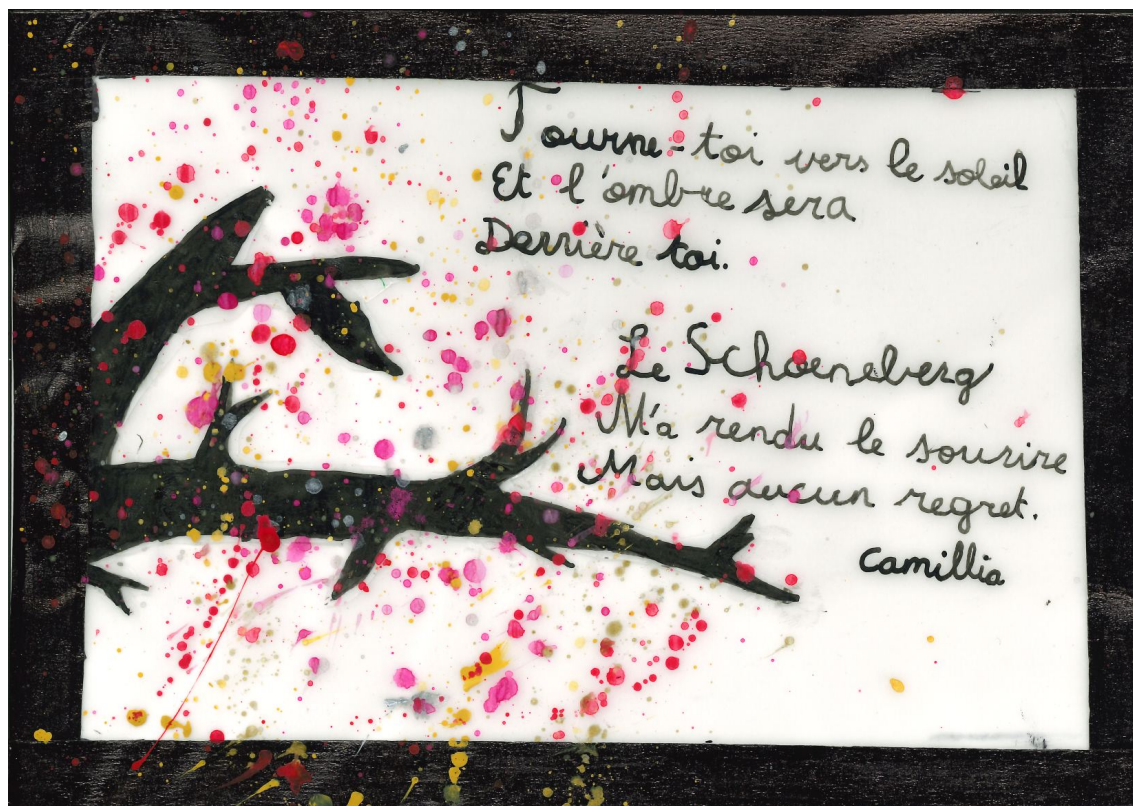 Tourne-toi vers le soleil
Et l'ombre sera
Derrière toi.
Le Schoeneberg
M'a rendu le sourire
Mais aucun regret.
Camillia